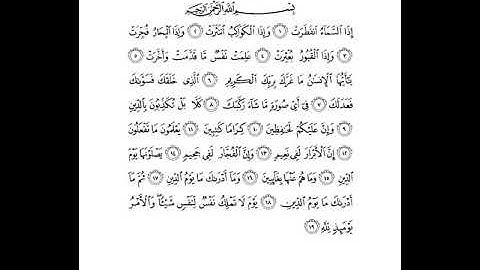 بِسْمِ اللَّهِ الرَّحْمَٰنِ الرَّحِيمِ
إِذَا السَّمَاءُ انْفَطَرَتْ ١ وَإِذَا الْكَوَاكِبُ انْتَثَرَتْ ٢ وَإِذَا الْبِحَارُ فُجِّرَتْ
٣ وَإِذَا الْقُبُورُ بُعْثِرَتْ ٤ عَلِمَتْ نَفْسٌ مَا قَدَّمَتْ وَأَخَّرَتْ ٥
يَٰأَيُّهَا الْإِنْسَٰنُ مَا غَرَّكَ بِرَبِّكَ الْكَرِيمِ ٦ الَّذِي خَلَقَكَ فَسَوَّىٰكَ
فَعَدَلَكَ ٧ فِي أَيِّ صُورَةٍ مَا شَاءَ رَكَّبَكَ ٨ كَلَّا بَلْ تُكَذِّبُونَ بِالدِّينِ
٩ وَإِنَّ عَلَيْكُمْ لَحَٰفِظِينَ ١٠ كِرَامًا كَٰتِبِينَ ١١ يَعْلَمُونَ مَا تَفْعَلُونَ
١٢ إِنَّ الْأَبْرَارَ لَفِي نَعِيمٍ ١٣ وَإِنَّ الْفُجَّارَ لَفِي جَحِيمٍ ١٤ يَصْلَوْنَهَا يَوْمَ
الدِّينِ ١٥ وَمَا هُمْ عَنْهَا بِغَائِبِينَ ١٦ وَمَا أَدْرَىٰكَ مَا يَوْمُ الدِّينِ ١٧ ثُمَّ مَا
أَدْرَىٰكَ مَا يَوْمُ الدِّينِ ١٨ يَوْمَ لَا تَمْلِكُ نَفْسٌ لِنَفْسٍ شَيْئًا وَالْأَمْرُ
يَوْمَئِذٍ لِلَّهِ ١٩